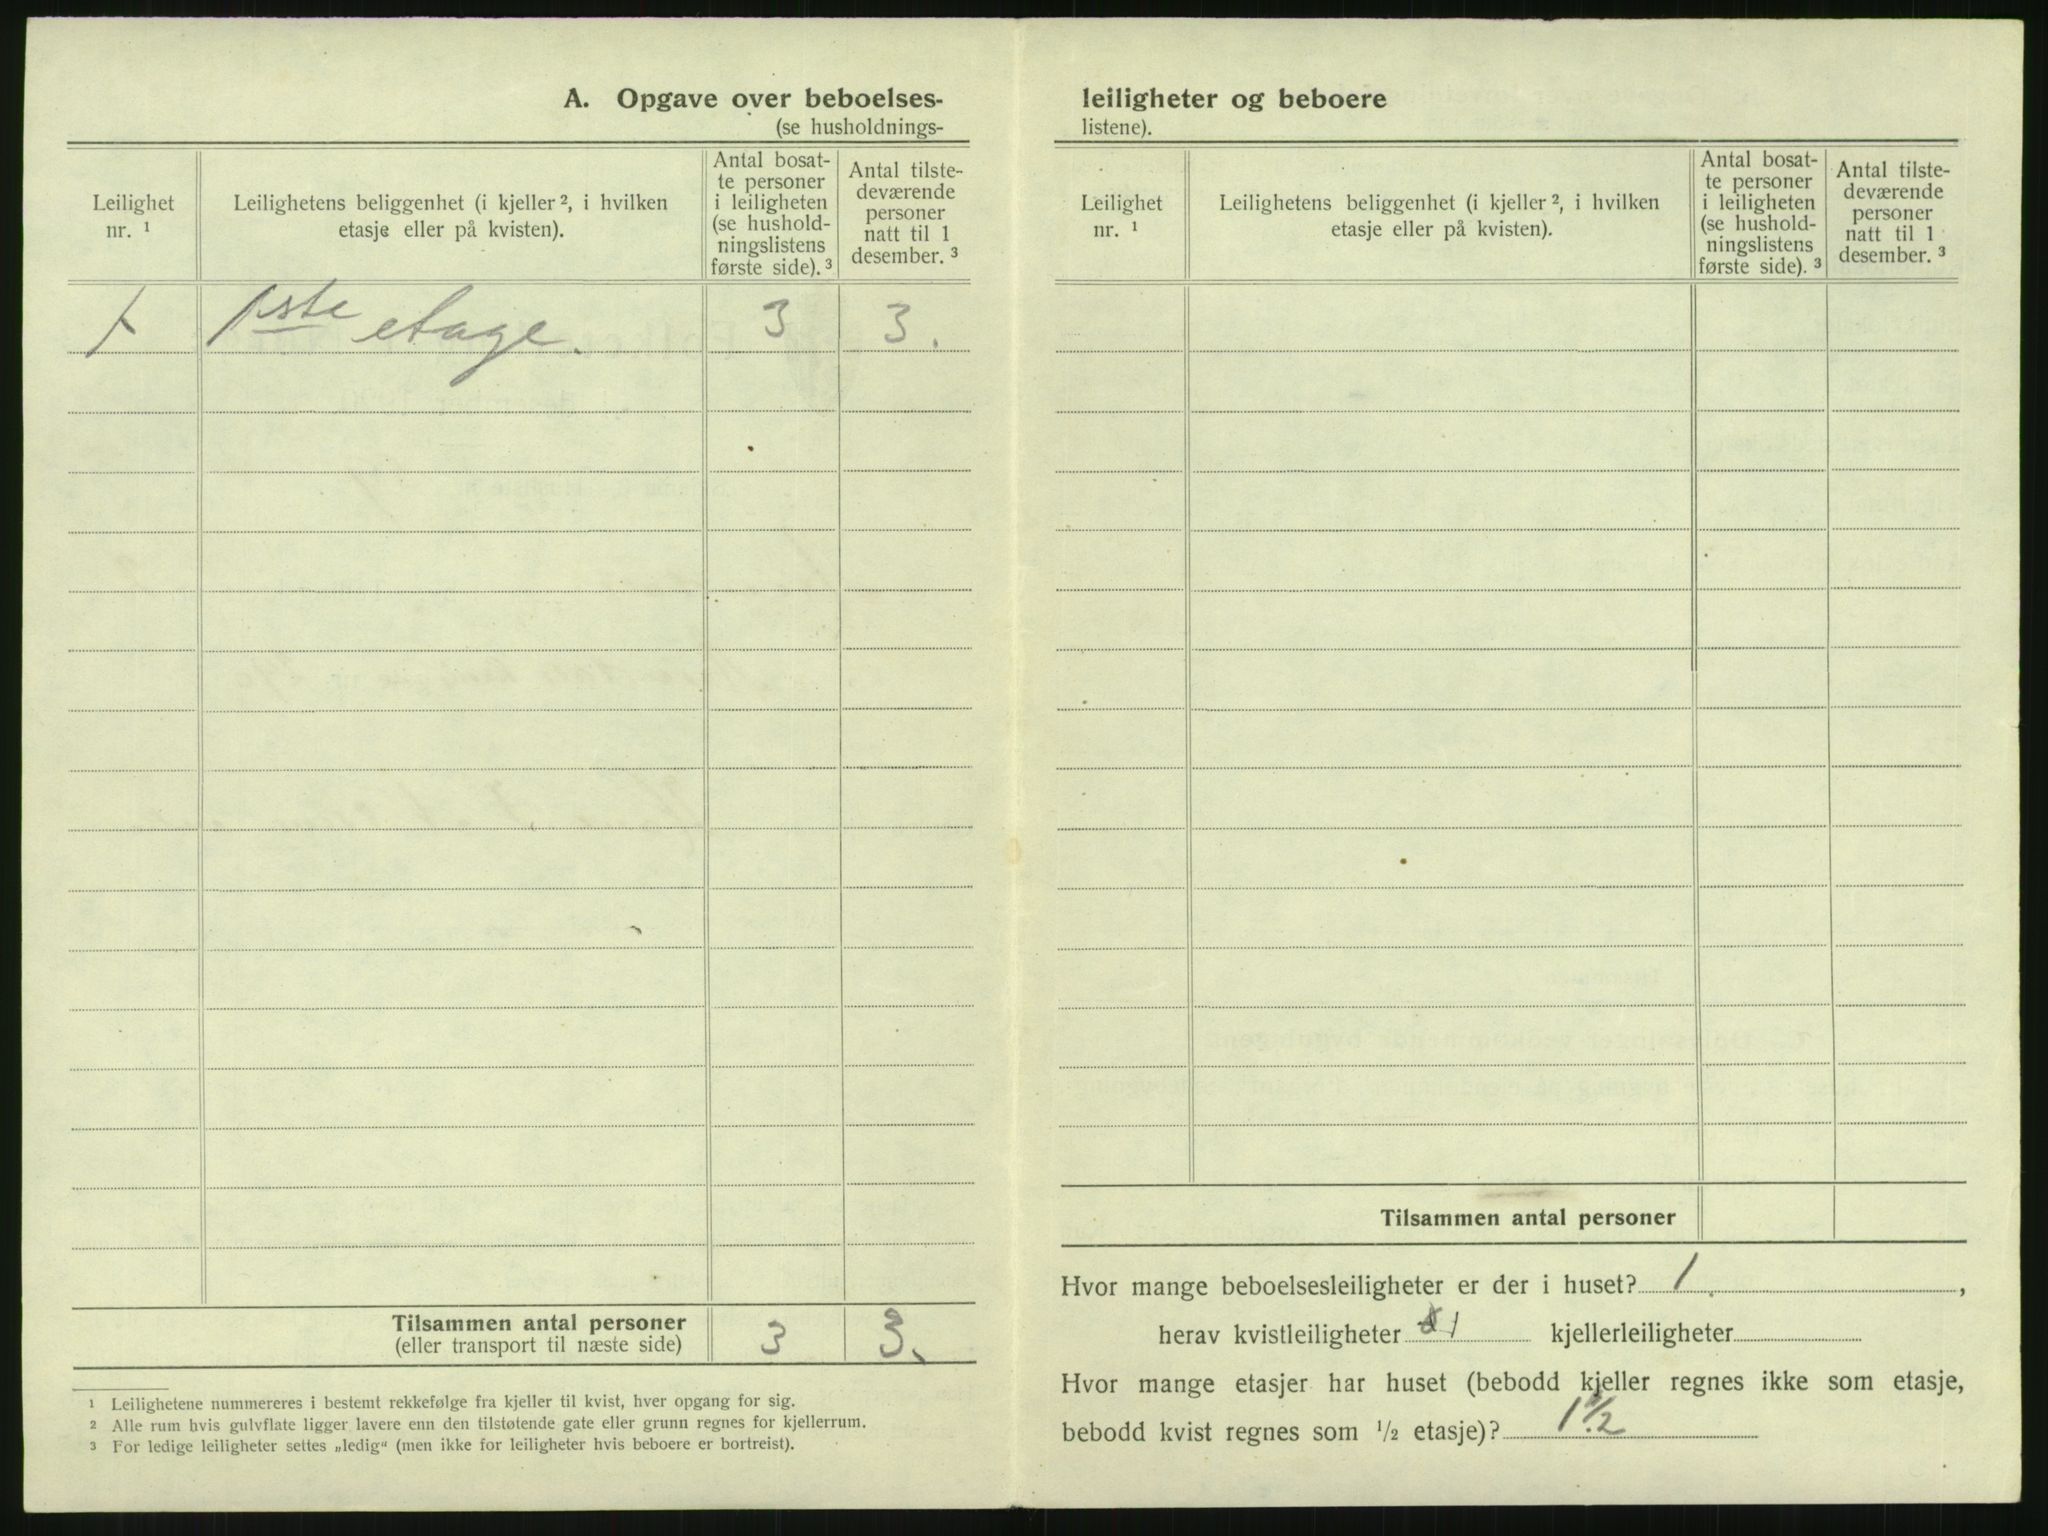 A. Opgave over beboelses-
(se husholdnings-
Leilighet
nr. ¹
Leilighetens beliggenhet (i kjeller ², i hvilken
etasje eller på kvisten).
Antal bosat-
te personer
i leiligheten
(se hushold-
ningslistens
første side). ³
Antal tilste-
deværende
personer
natt til 1
desember. ³
1ste etage. 3 3.
Tilsammen antal personer 3 3.
(eller transport til næste side)
¹ Leilighetene nummereres i bestemt rekkefølge fra kjeller til kvist, hver opgang for sig.
² Alle rum hvis gulvflate ligger lavere enn den tilstøtende gate eller grunn regnes for kjellerrum.
³ For ledige leiligheter settes „ledig“ (men ikke for leiligheter hvis beboere er bortreist).
leiligheter og beboere
listene).
Leilighet
nr. ¹
Leilighetens beliggenhet (i kjeller ², i hvilken
etasje eller på kvisten).
Antal bosat-
te personer
i leiligheten
(se hushold-
ningslistens
første side). ³
Antal tilste-
deværende
personer
natt til 1
desember. ³
Tilsammen antal personer
Hvor mange beboelsesleiligheter er der i huset? 1.,
herav kvistleiligheter 1 kjellerleiligheter
Hvor mange etasjer har huset (bebodd kjeller regnes ikke som etasje,
bebodd kvist regnes som ½ etasje)? 1½